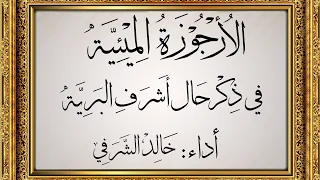 الأُرْجُوزَةُ المِيْئِيَّةُ
فِي ذِكْرِ حَالِ أَشْرَفِ البَرِيَّةِ
أداء: خَالِدْ الشَّرَفِي